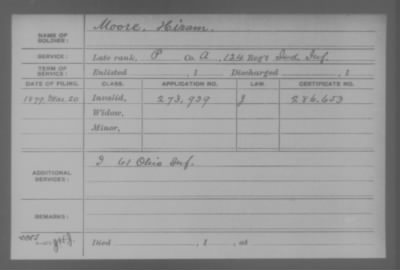 Moore, Hiram.
NAME OF SOLDIER:
SERVICE: Late rank, P Co. A, 124 Reg't Ind Inf.
TERM OF SERVICE: Enlisted , 1 Discharged , 1
DATE OF FILING. CLASS. APPLICATION NO. LAW. CERTIFICATE NO.
1879 Mar. 20 Invalid, 273,939 J 286,653
Widow,
Minor,
ADDITIONAL SERVICES: I 61 Ohio Inf.
REMARKS:
Died , 1 , at